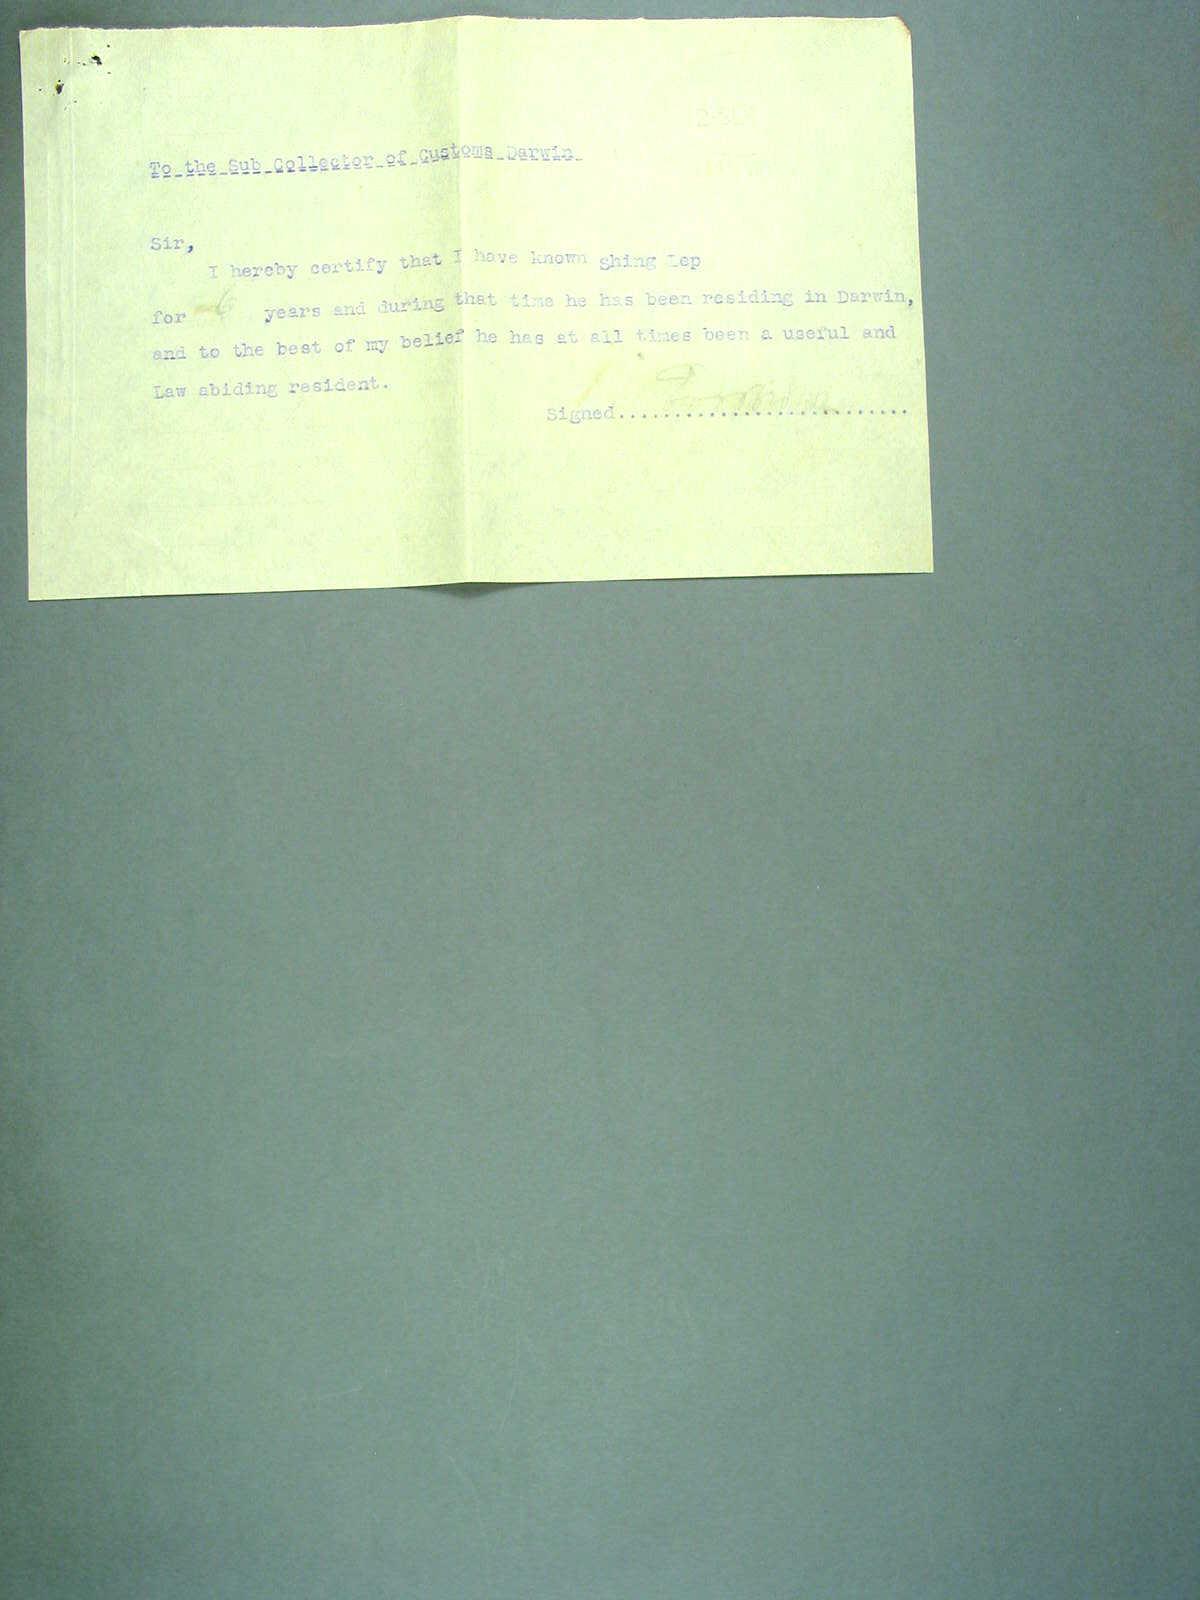 To the Sub Collector of Customs Darwin
Sir,
I hereby certify that I have known Shing Lep
for 6 years and during that time he has been residing in Darwin,
and to the best of my belief he has at all times been a useful and
Law abiding resident.
Signed..........................